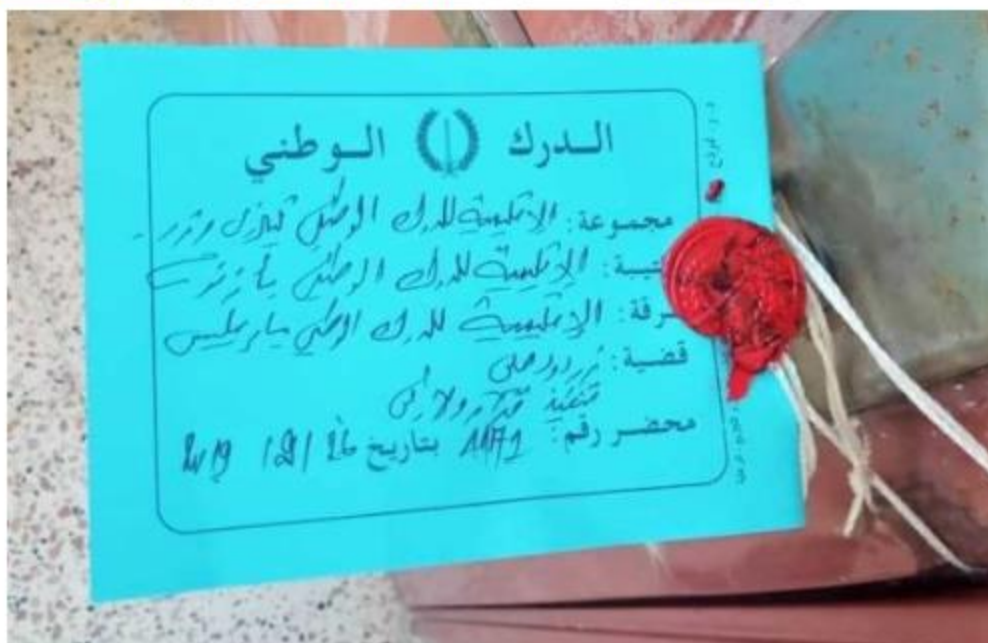 الدرك الوطني
مجموعة: الإقليمية للدرك الوطني تيزي وزو
كتيبة: الإقليمية للدرك الوطني
فرقة: الإقليمية للدرك الوطني
قضية:
تنفيذ قرار ولائي
محضر رقم: 1171 بتاريخ 26/12/2019